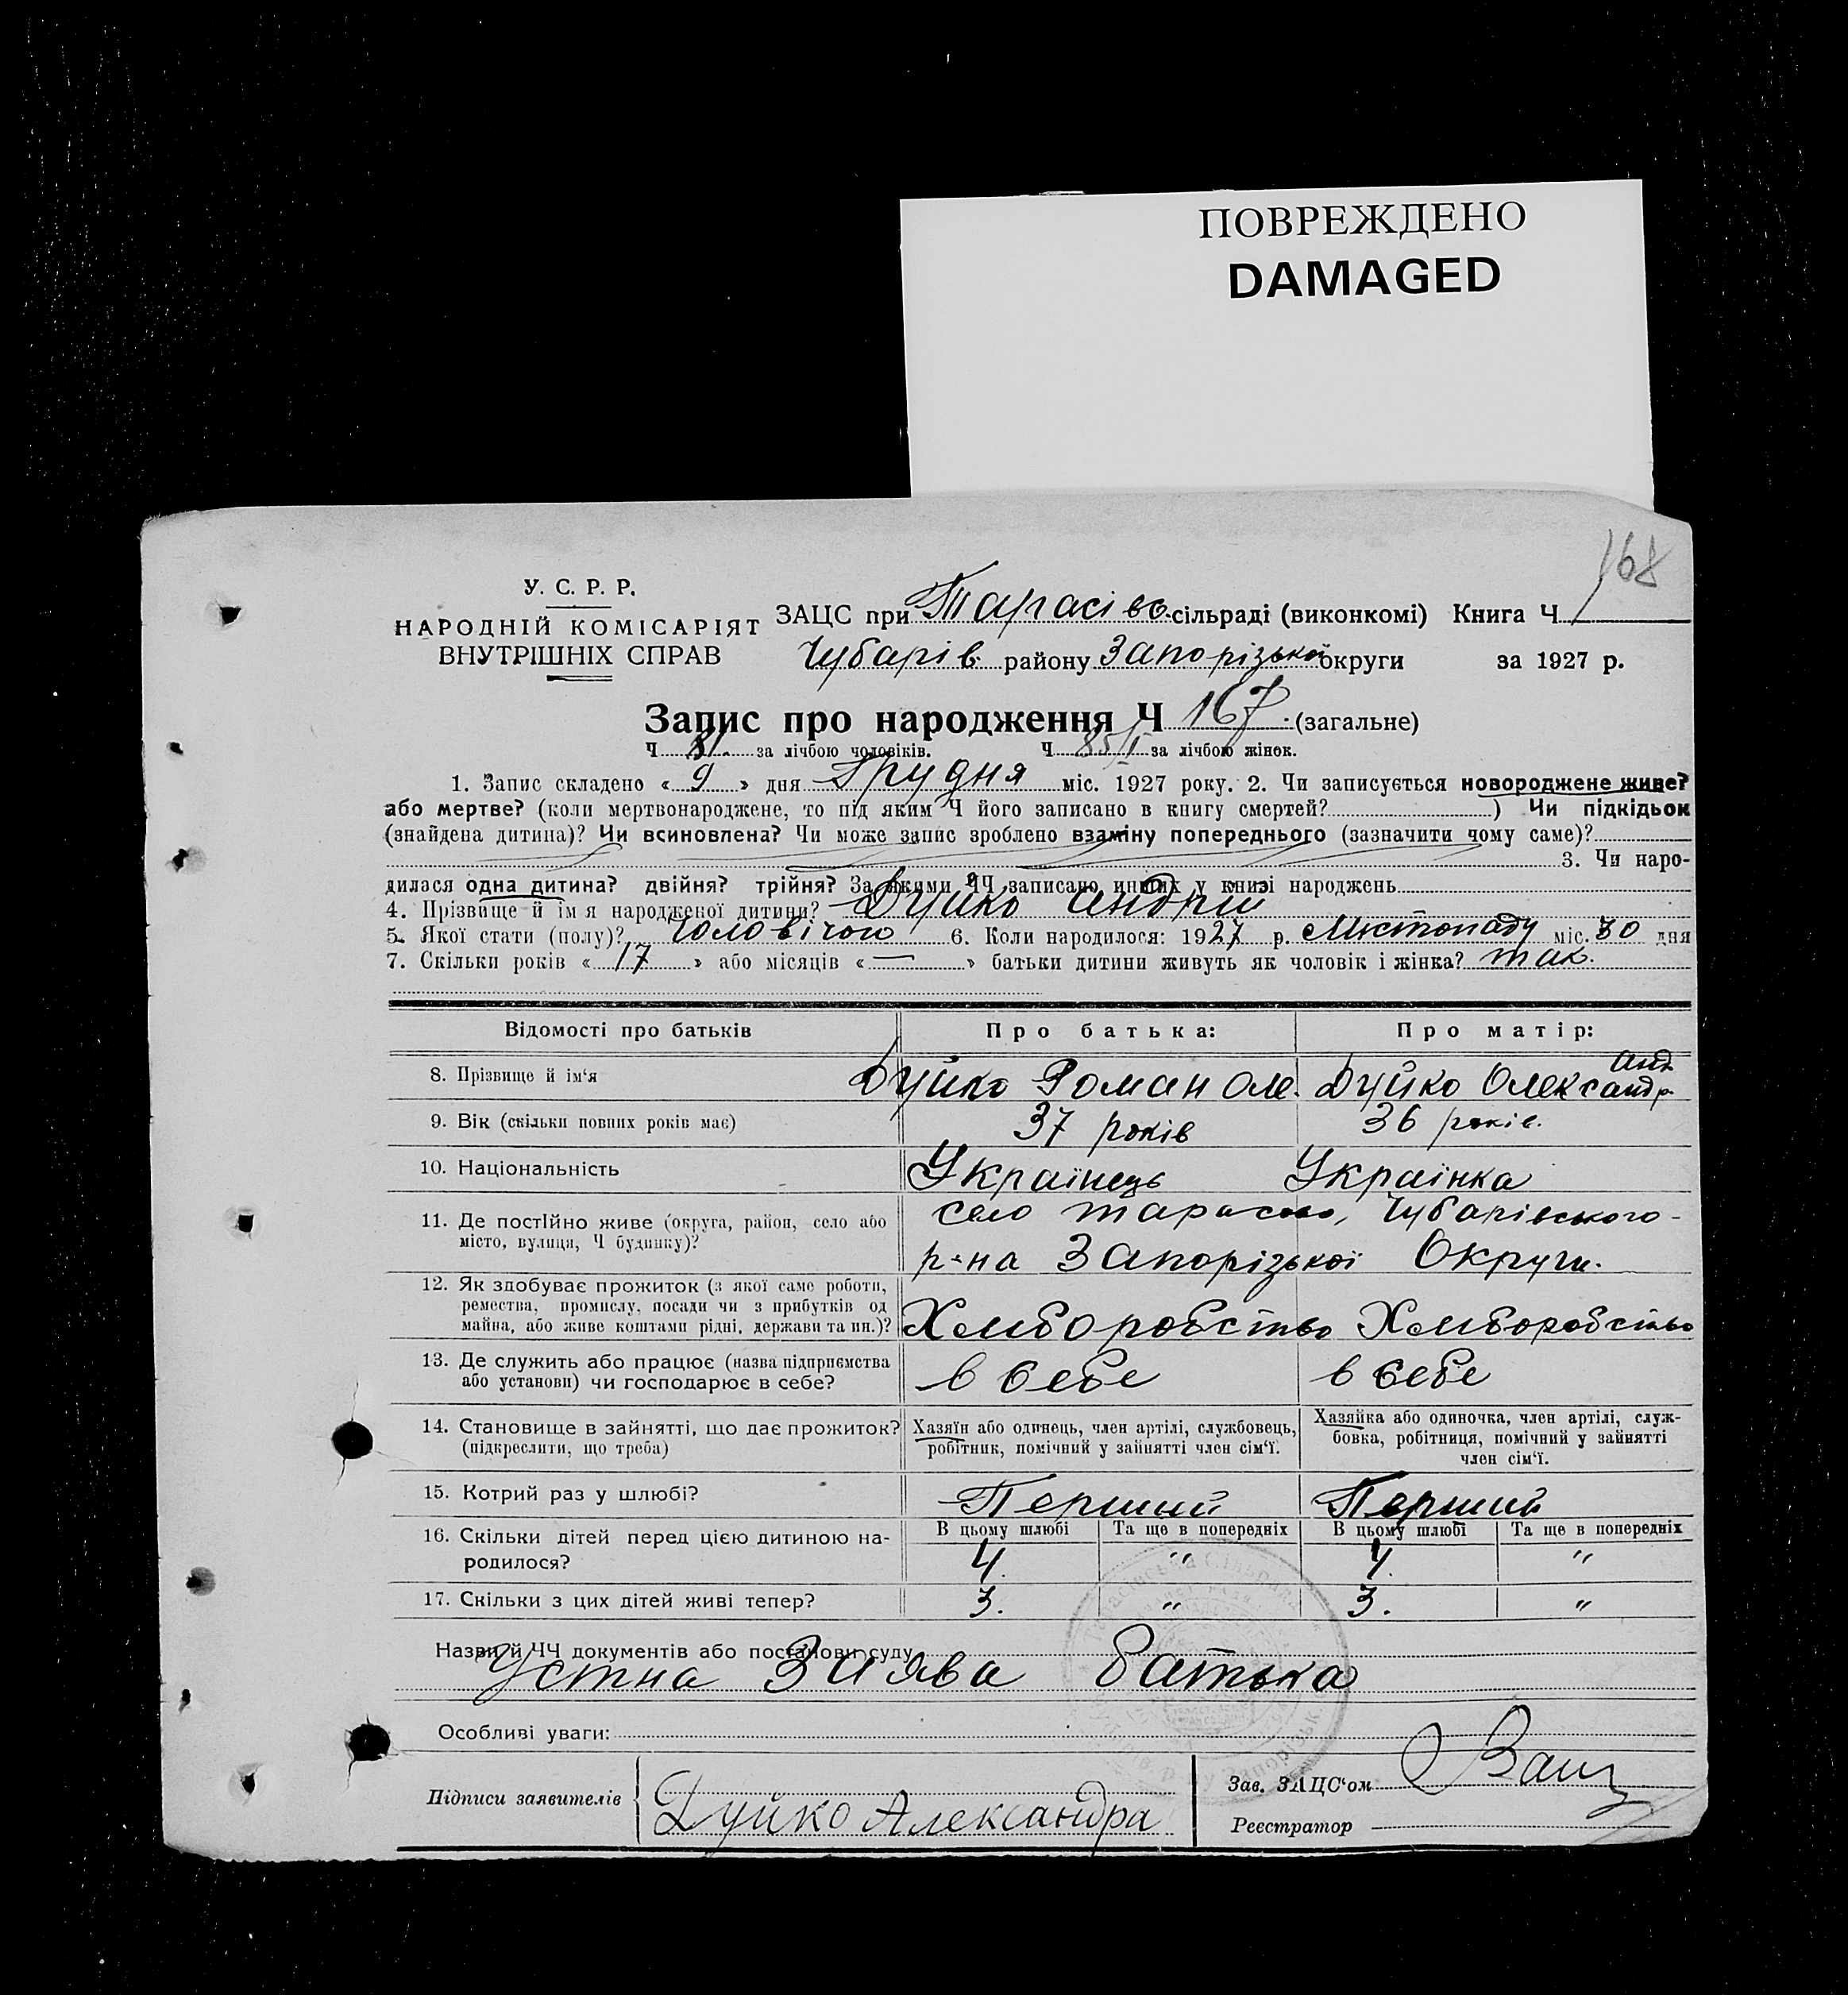 ПОВРЕЖДЕНО
DAMAGED
168
У. С. Р. Р.
НАРОДНІЙ КОМІСАРІЯТ
ВНУТРІШНІХ СПРАВ
ЗАЦС при Тарасівс. сільраді (виконкомі) Книга Ч
Чубарів. району Запорізької округи за 1927 р.
Запис про народження Ч 167 (загальне)
Ч 81 за лічбою чоловіків. Ч за лічбою жінок.
1. Запис складено « 9 » дня Грудня міс. 1927 року. 2. Чи записується новороджене живе?
або мертве? (коли мертвонароджене, то під яким Ч його записано в книгу смертей? ) Чи підкідьок
(знайдена дитина)? Чи всиновлена? Чи може запис зроблено взаміну попереднього (зазначити чому саме)?
3. Чи наро-
дилася одна дитина? двійня? трійня? За якими ЧЧ записано инших у книзі народжень
4. Прізвище й ім'я народженої дитини? Дуйко Андрій
5. Якої стати (полу)? Чоловічою 6. Коли народилося: 1927 р. Листопаду міс. 30 дня
7. Скільки років « 17 » або місяців « — » батьки дитини живуть як чоловік і жінка? так.
Відомості про батьків Про батька: Про матір:
8. Прізвище й ім'я Дуйко Роман Оле. Дуйко Олександр. Анд
9. Вік (скільки повних років має) 37 років 36 років.
10. Національність Українець Українка
11. Де постійно живе (округа, район, село або село Чубарівського-
місто, вулиця, Ч будинку)? р-на Запорізької Округи.
12. Як здобуває прожиток (з якої саме роботи,
ремества, промислу, посади чи з прибутків од
майна, або живе коштами рідні, держави та ин.)? Хліборобство Хліборобство
13. Де служить або працює (назва підприємства
або установи) чи господарює в себе? в себе в себе
14. Становище в зайнятті, що дає прожиток? Хазяїн або одинець, член артілі, службовець, Хазяйка або одиночка, член артілі, служ-
(підкреслити, що треба) робітник, помічний у зайнятті член сім'ї. бовка, робітниця, помічний у зайнятті
член сім'ї.
15. Котрий раз у шлюбі? Перший Перший
16. Скільки дітей перед цією дитиною на- В цьому шлюбі Та ще в попередніх В цьому шлюбі Та ще в попередніх
родилося? 4. " 4. "
17. Скільки з цих дітей живі тепер? 3. " 3. "
Назви й ЧЧ документів або постанови суду
Устна Заява батька
Особливі уваги:
Підписи заявителів Дуйко Александра
Зав. ЗАЦС'ом
Реєстратор